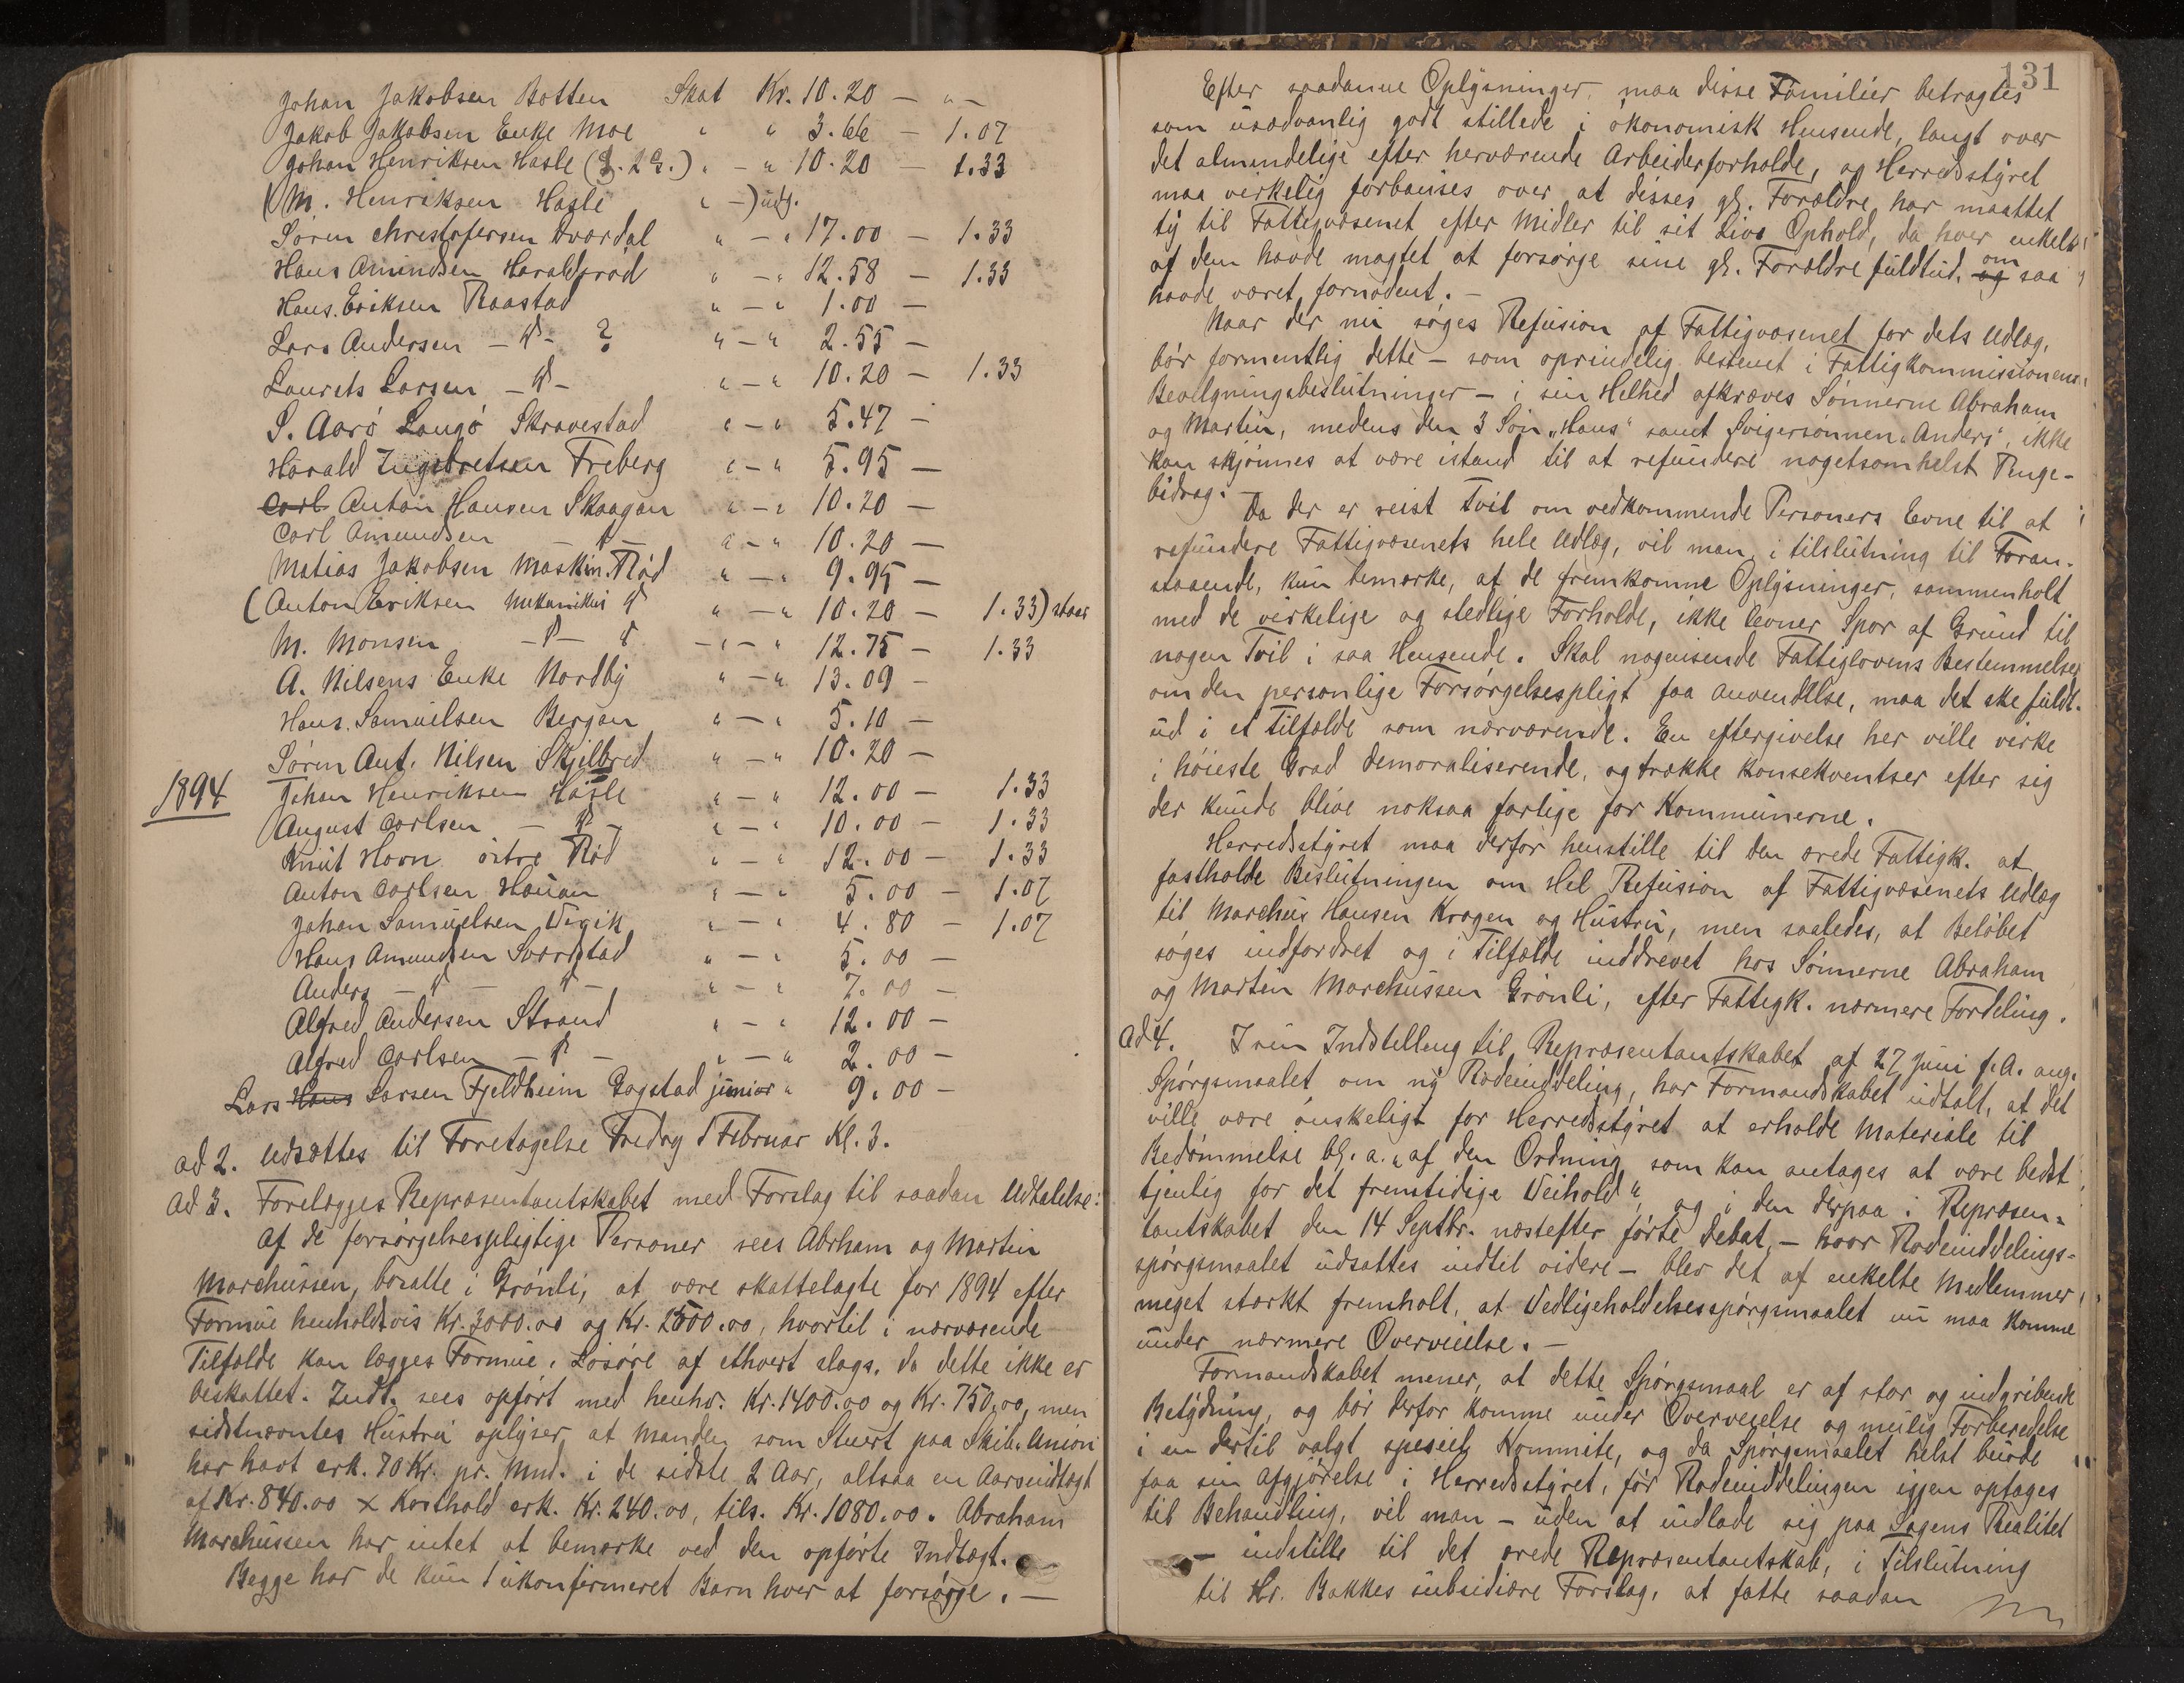 Johan Jakobsen Botten Skat Kr. 10.20 — " —
Jakob Jakobsen Enke Moe " " 3.66 — 1.07
Johan Henriksen Hasle (S. 2 G.) " — " 10.20 — 1.33
(M. Henriksen Hasle " —) udg.
Søren Christofersen Kvardal " — " 17.00 — 1.33
Hans Amundsen Haraldsrød " — " 12.58 — 1.33
Hans. Eriksen Raastad " — " 1.00 —
Lars Andersen — d° — ? " — " 2.55 —
Laurits Larsen — d° — " — " 10.20 — 1.33
S. Aarø Langø Skravestad " — " 5.47 —
Harald Ingebretsen Freberg " — " 5.95 —
Carl Anton Hansen Skaagan " — " 10.20 —
Carl Amundsen — d° — " — " 10.20 —
Matias Jakobsen Maskin. Rød " — " 9.95 —
(Anton Eriksen Mekanikus d° " — " 10.20 — 1.33) staar
M. Monsen — d° — d° — " — " 12.75 — 1.33
A. Nilsens Enke Nordby " — " 13.09 —
Hans. Samuelsen Bergan " — " 5.10 —
Søren Ant. Nilsen Skjelbred " — " 10.20 —
1894 Johan Henriksen Hasle " — " 12.00 — 1.33
August Carlsen — d° — " — " 10.00 — 1.33
Knut Havn østre Rød " — " 12.00 — 1.33
Anton Carlsen Hauan " — " 5.00 — 1.07
Johan Samuelsen Vegik " — " 4.80 — 1.07
Hans Amundsen Svardstad " — " 5.00 —
Anders — d° — d° — " — " 7.00 —
Alfred Andersen Strand " — " 12.00 —
Alfred Carlsen — d° — " — " 2.00 —
Lars Hans Larsen Fjeldheim Gogstad junior " 9.00 —
ad 2. Udsættes til Foretagelse Fredag 1 Februar Kl. 3.
ad 3. Forelægges Repræsentantskabet med Forslag til saadan Udtalelse:
Af de forsørgelsespligtige Personer sees Abrham og Martin
Marchussen, bosatte i Grønli, at være skattelagte for 1894 efter
Formue henholdsvis Kr. 3000.00 og Kr. 2500.00, hvortil i nærværende
Tilfælde kan lægges Formue i Løsøre af ethvert slags, da dette ikke er
beskattet. Indt. sees opført med henhv. Kr. 1400.00 og Kr. 750.00, men
sidstnævntes Hustru oplyser at Manden som Stuert paa Skib. Union
har havt cirk. 70 Kr. pr. Mnd. i de sidste 2 Aar, altsaa en Aarsindtægt
af Kr. 840.00 + Kosthold cirk. Kr. 240.00, tils. Kr. 1080.00. Abraham
Marchussen har intet at bemærke ved den opførte Indtægt.
Begge har de kun 1 ukonfirmeret Barn hver at forsørge. —
131
Efter saadanne Oplysninger, maa disse Familier betragtes
som usædvanlig godt stillede i økonomisk Henseende, langt over
det almindelige efter herværende Arbeiderforholde, og Herredsstyret
maa virkelig forbauses over at disses gl. Forældre har maattet
ty til Fattigvæsenet efter Midler til sit Livs Ophold, da hver enkelt
af dem havde magtet at forsørge sine gl. Forældre fuldtud, og om saa
havde været fornødent. —
Naar der nu søges Refusion af Fattigvæsenet for dets Udlæg,
bør formentlig dette — som oprindelig bestemt i Fattigkommissionens
Bevilgningsbeslutninger — i sin Helhed afkræves Sønnerne Abraham
og Martin, medens den 3 Søn "Hans" samt Svigersønnen "Anders", ikke
kan skjønnes at være istand til at refundere nogetsomhelst Penge-
bidrag.
Da der er reist Tvil om vedkommende Personers Evne til at
refundere Fattigvæsenets hele Udlæg, vil man i tilslutning til Foran-
staaende, kun bemærke, at de fremkomne Oplysninger, sammenholt
med de virkelige og stedlige Forholde, ikke levner Spor af Grund til
nogen Tvil i saa Henseende. Skal nogensinde Fattiglovens Bestemmelser
om den personlige Forsørgelsespligt faa anvendelse, maa det ske fuldt-
ud i et Tilfælde som nærværende. En eftergivelse her ville virke
i høieste Grad demoraliserende, og trække Konsekventser efter sig
der kunde blive noksaa farlige for Kommunerne.
Herredsstyret maa derfor henstille til den ærede Fattigk. at
fastholde Beslutningen om Hel Refusion af Fattigvæsenets Udlæg
til Marchus Hansen Kragen og Hustru, men saaledes, at Beløbet
søges indfordret og i Tilfælde inddrevet hos Sønnerne Abraham
og Martin Marchussen Grønli, efter Fattigk. nærmere Fordeling.
ad 4. I sin Indstilling til Repræsentantskabet af 27 Juni f. A. ang.
Spørgsmaalet om ny Rodeinddeling, har Formandskabet udtalt, at det
ville være ønskeligt for Herredsstyret at erholde Materiale til
Bedømmelse bl. a. "af den Ordning som kan antages at være bedst
tjenlig for det fremtidige Veihold", og i den derpaa i Repræsen-
tantskabet den 14 Septbr. næstefter førte Debat, — hvor Rodeinddelings-
spørgsmaalet udsattes indtil videre — blev det af enkelte Medlemmer
meget stærkt fremholt, at Vedligeholdelsesspørgsmaalet nu maa komme
under nærmere Overveielse. —
Formandskabet mener, at dette Spørgsmaal er af stor og indgribende
Betydning, og bør derfor komme under Overveielse og mulig Forberedelse
i en dertil valgt speciel Kommite, og da Spørgsmaalet helst burde
faa sin Afgjørelse i Herredsstyret, før Rodeinddelingen igjen optages
til Behandling, vil man — uden at indlade sig paa Sagens Realitet
— indstille til det ærede Repræsentantskab, i Tilslutning
til Hr. Bakkes subsidiære Forslag, at fatte saadan